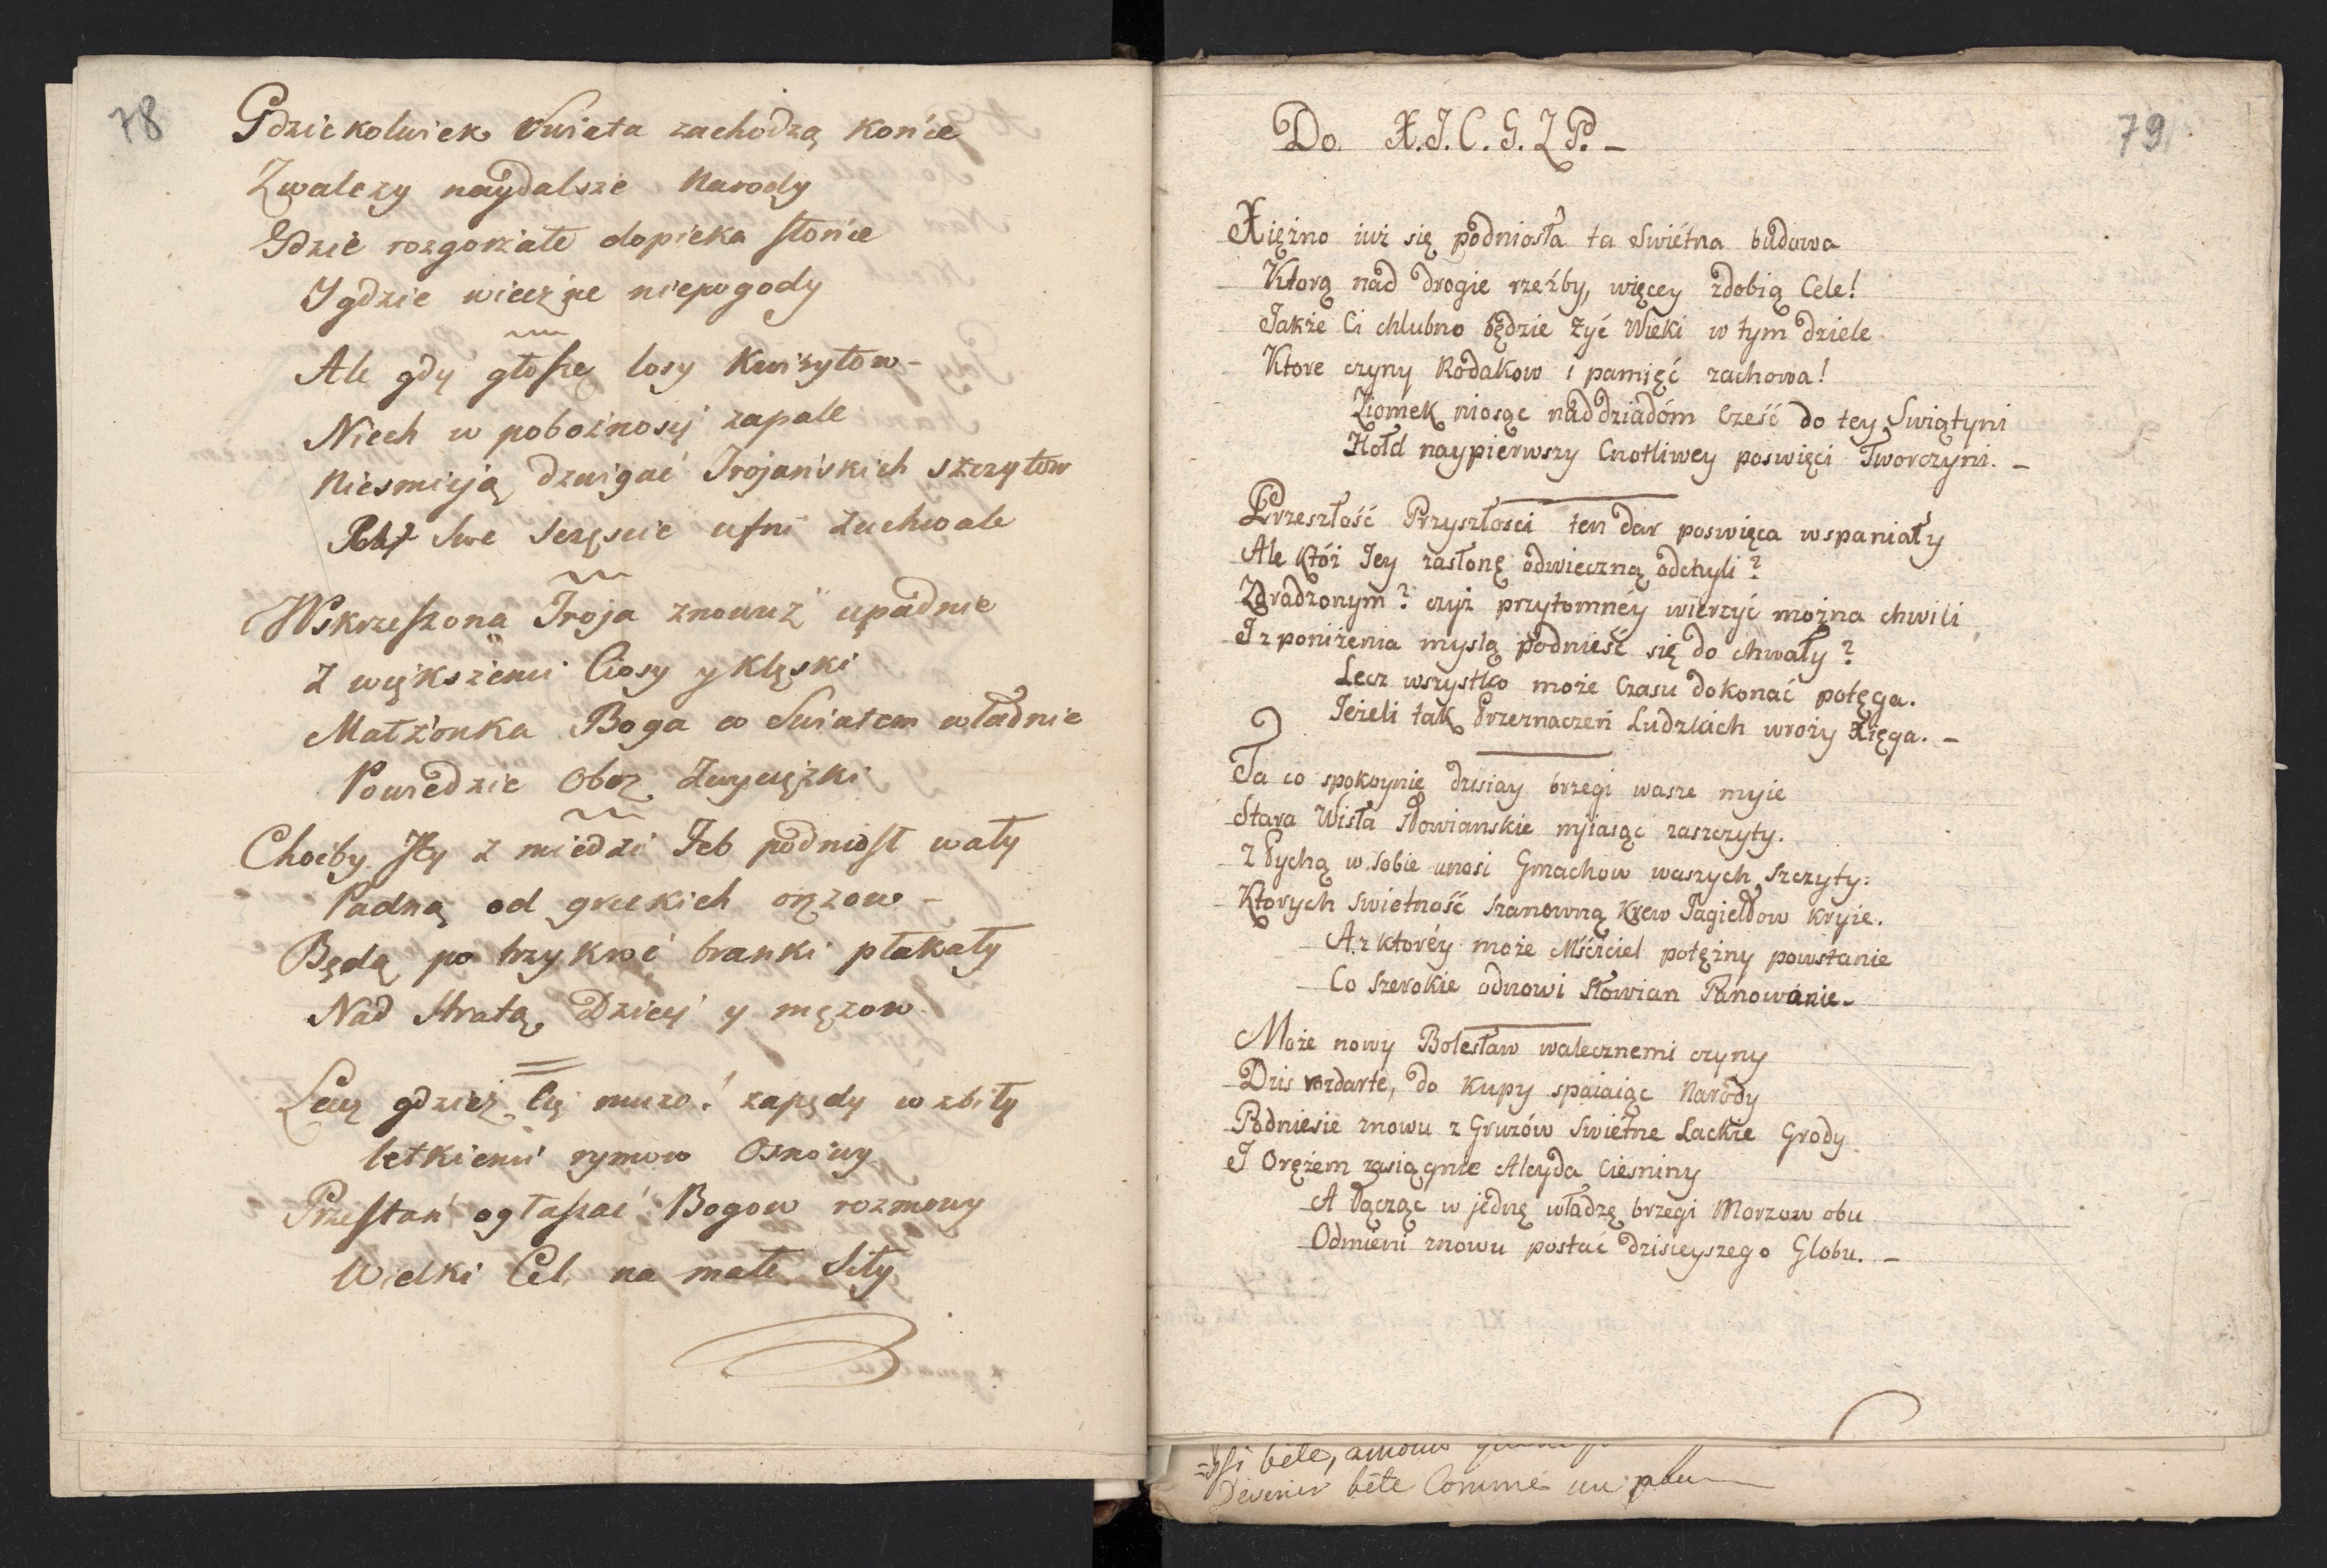 78
Gdziekolwiek Swiata zachodzą końce
Zwalczy naydalsze Narody
Gdzie rozgorzałe dopieka słońce
Y gdzie wieczne niepogody
Ale gdy głoszę losy Kwirytow -
Niech w pobożnosci zapale
Niesmieją dzwigać Trojańskich szczytow
Swe Szczęscie ufni zuchwale
Wskrzeszona Troja znowuż upadnie
Z większemi Ciosy y Klęski
Małżonka Boga co Swiatem władnie
Powiedzie Oboz Zwycięzki
Chocby Jey z miedzi Feb podniosł wały
Padną od greckich oręzow -
Będą po trzykroć branki płakały
Nad Stratą Dzieci y męzow
Lecz gdzież Cię muzo! zapędy wzbiły
letkiemi rymow Osnowy
Przestań ogłaszać Bogow rozmowy
Wielki Cel na małe Siły
79
Do X. J. C. G. Z P. -
Xiężno iuż się podniosła ta Swietna budowa
Ktorą nad drogie rzeźby, więcey zdobią Cele!
Jakże Ci chlubno będzie żyć Wieki w tym dziele
Ktore czyny Rodakow i pamięć zachowa!
Ziomek niosąc naddziadóm Cześć do tey Swiątyni
Hołd naypierwszy Cnotliwey poswięci Tworczyni. -
Przeszłość Przyszłosci ten dar poswięca wspaniały
Ale któż Jey zasłonę odwieczną odchyli?
Zdradzonym? czyż przytomnéy wierzyć można chwili
I z poniżenia myslą podnieść się do chwały?
Lecz wszystko może Czasu dokonać potęga.
Jeżeli tak Przeznaczeń Ludzkich wroży Xięga. -
Ta co spokoynie dzisiay brzegi wasze myie
Stara Wisła Słowianskie mijaiąc zaszczyty.
Z Pychą w sobie unosi Gmachow waszych Szczyty:
Ktorych Swietność Szanowną Krew Jagiełłow kryie.
A z ktoréy może Mściciel potężny powstanie
Co Szerokie odnowi Słowian Panowanie -
Może nowy Bolesław walecznemi czyny
Dzis rozdarte, do Kupy spaiaiąc Narody
Podniesie znowu z Gruzów Swietne Lackie Grody
I Orężem zasiągnie Alcyda Ciesniny
A Łącząc w jednę władzę brzegi Morzow obu
Odmieni znowu postać dzisieyszego Globu. -
si bête, amour
Devenir bête Comme un